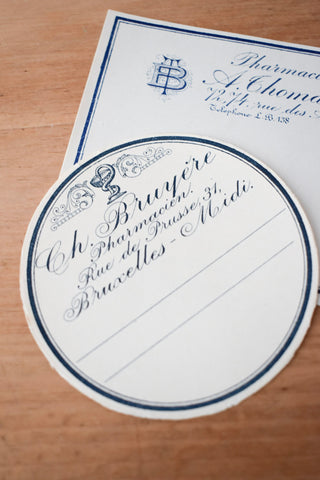 Pharmaci
A. Thoma
72-74, rue des
Téléphone L. B. 138
TB
Ch. Bruyère
Pharmacien.
Rue de Prusse, 31,
Bruxelles-Midi.